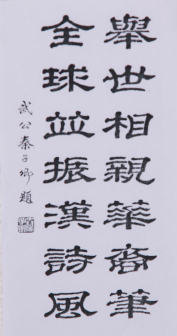 舉世相親華裔筆
全球並振漢詩風
武公秦子卿題